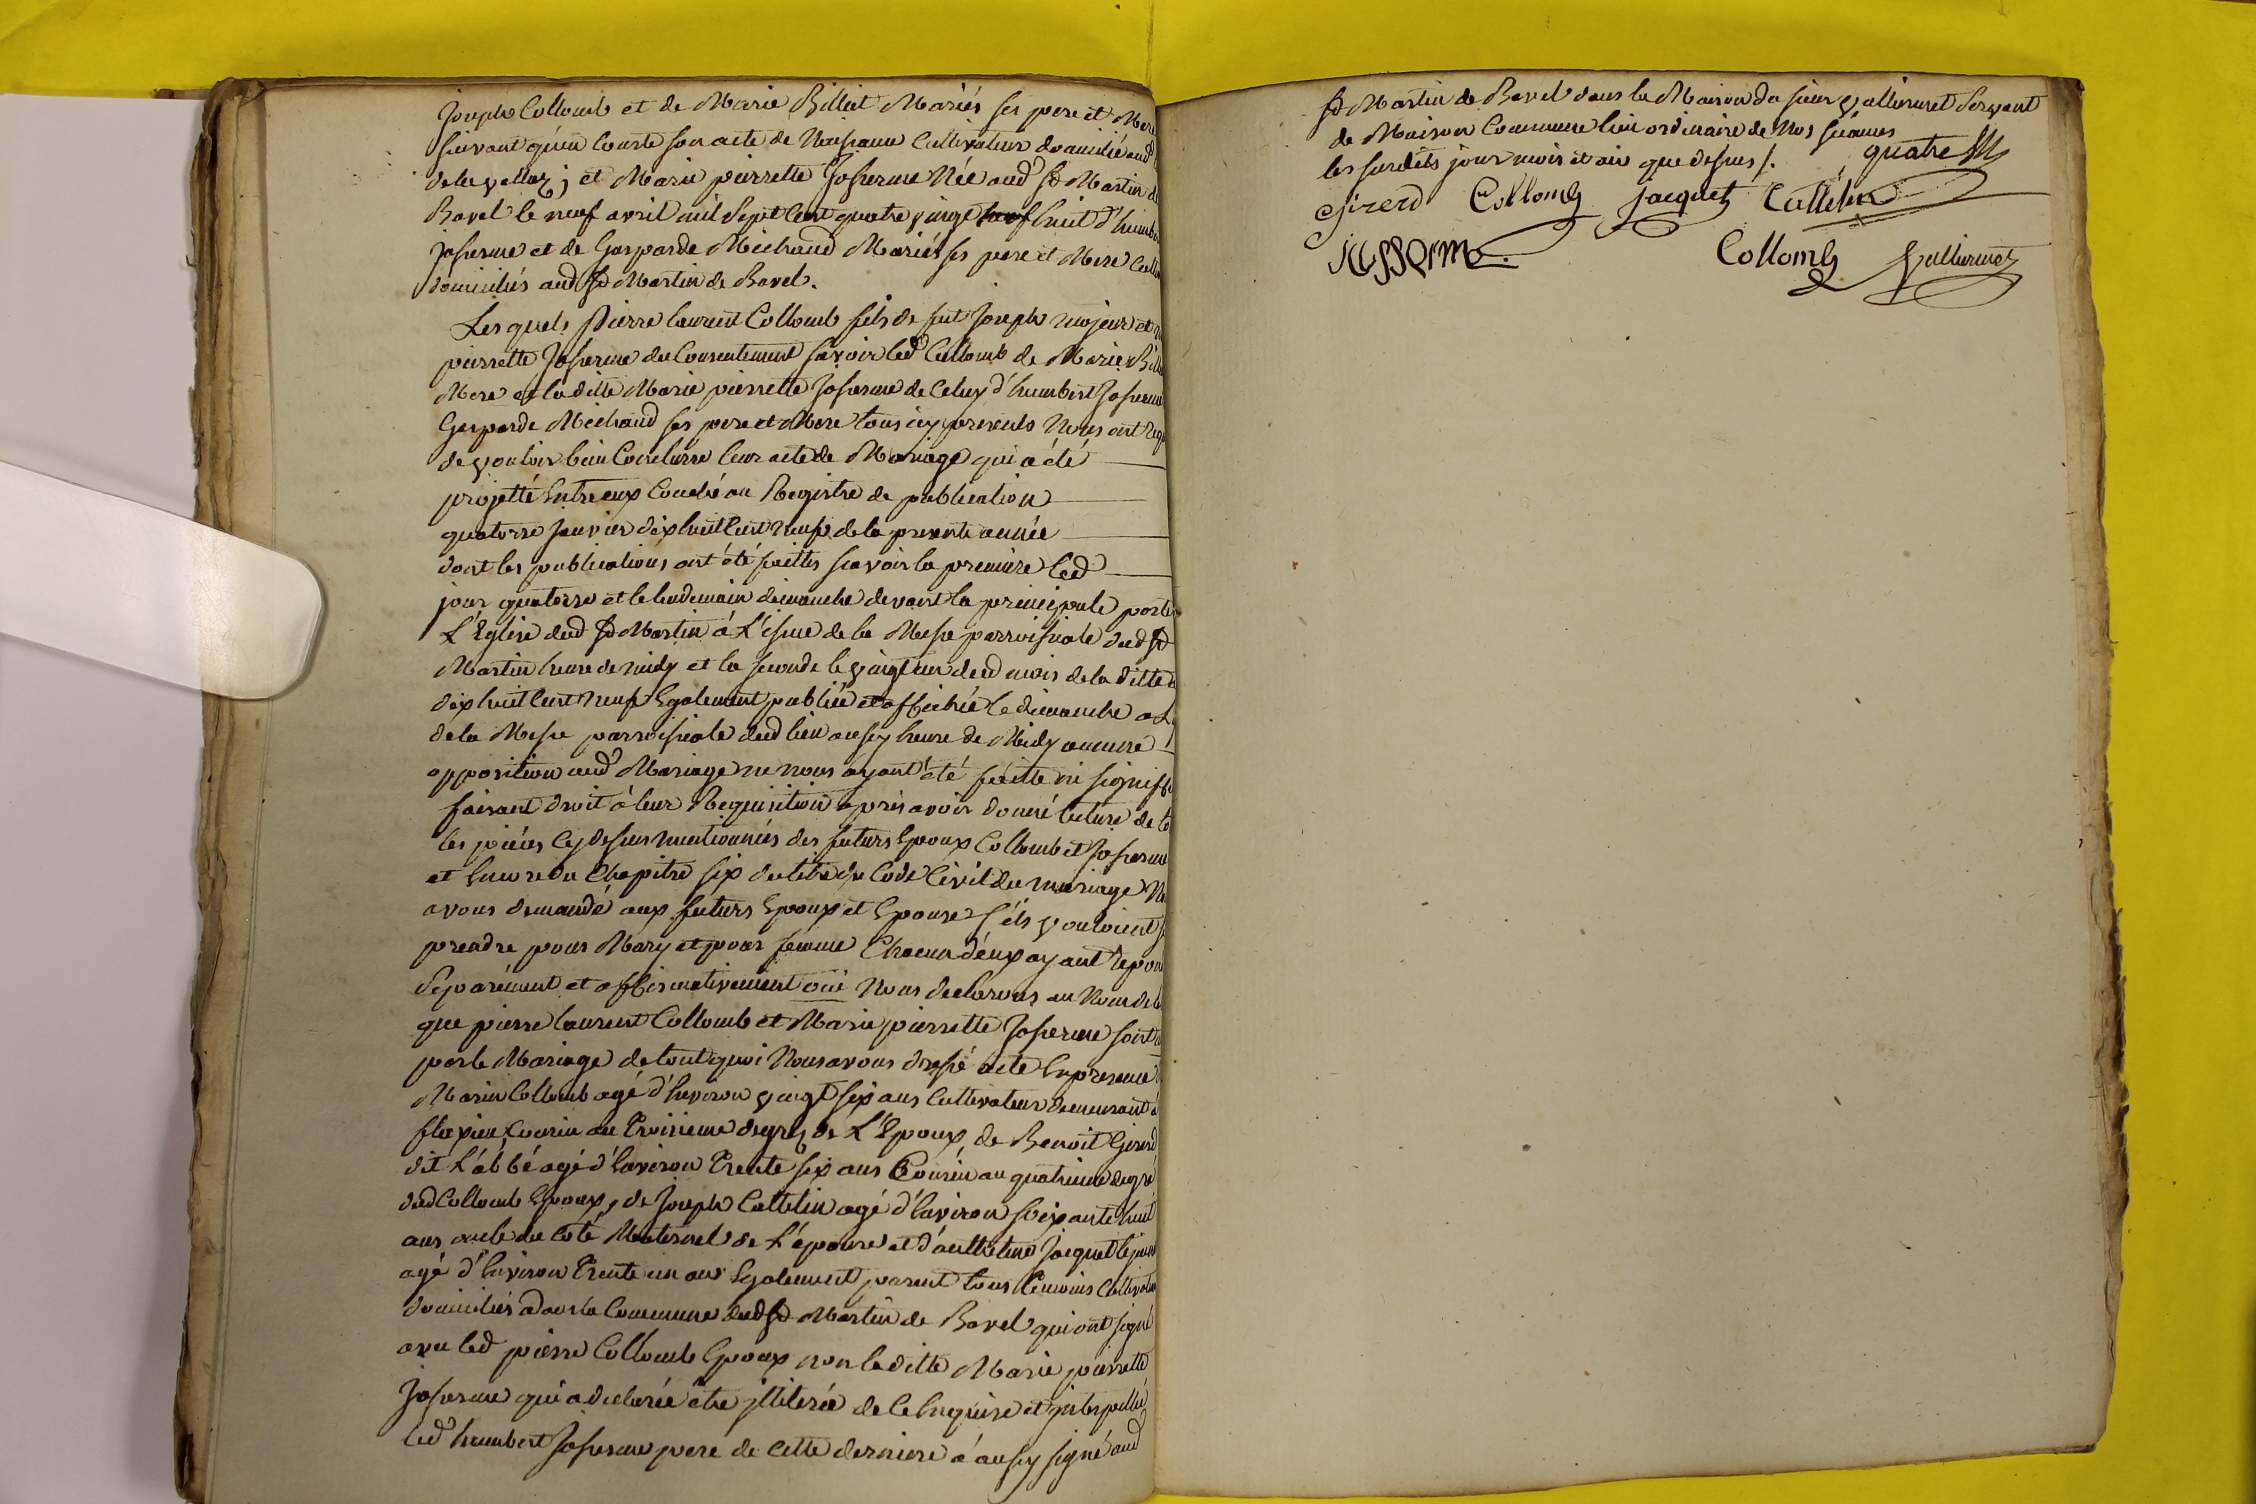 Joseph Collomb et de Marie Billiet Mariés ses pere et Mere
suivant qu'en Conste son acte de Naissance Cultivateur domicilié aud
; et Marie pierrette Josserme Née aud St Martin de
Bavel le neuf avril mil Sept Cent quatre vingt huit d'humbert
Josserme et de Gasparde Michaud Mariés ses pere et Mere
domiciliés aud St Martin de Bavel.
Les quels Pierre laurent Collomb fils de fut Joseph majeur et
pierrette Josserme du Consentement savoir led Collomb de Marie
Mere et la ditte Marie pierrette Josserme de Celuy d'humbert Josserme
Gasparde Michaud ses pere et Mere tous icy presents Nous ont
de vouloir bien Conclurre leur acte de Mariage qui a été
projetté Entre eux Couché au Registre de publication
quatorze Janvier dix huit Cent Neuf de la presente année
dont les publications ont été faittes scavoir la premiere led
jour quatorze et le lendemain dimanche devant la principale porte
L'Eglise dud St Martin á L'issue de la Messe parroissiale dud St
Martin heure de midy et la seconde le vingt un dud mois de la ditte
dix huit Cent Neuf Egalement publiée et affichée le dimanche a L
de la Messe parroissiale dud lieu aussy heure de Midy aucune
opposition aud Mariage ne nous ayant été faitte ni signiffi
faisant droit á leur Requisition aprés avoir donné lecture de to
les piéces Cy dessus mentionnées des futurs Epoux Collomb et Josserme
et Encore du Chapitre six du titre du Code Civil du mariage
avons demandé aux futurs Epoux et Epouse S'ils vouloient
prendre pour Mary et pour femme Chacun d'eux ayant repon
Separément et affirmativement oui Nous declarons au Nom de
que pierre laurent Collomb et Marie pierrette Josserme sont
par le Mariage de tout quoi Nous avons dressé acte En presence
Marin Collomb agé d'Environ vingt six ans Cultivateur demeurant á
flaxieu Cousin au Troisieme degrez de L'Epoux, de Benoit Girerd
dit L'abbé agé d'Environ Trente six ans Cousin au quatrieme degré
dud Collomb Epoux, de Joseph Cattelin agé d'Environ soixante huit
ans oncle du Coté Maternel de L'épouse et d'anthelme Jacquet le jeune
agé d'Environ Trente un ans Egalement parent tous Temoins Cultivateurs
domiciliés dans la Commune dud St Martin de Bavel qui ont signé
avec led pierre Collomb Epoux non la ditte Marie pierrette
Josserme qui a declarée être illiterée de Ce Enquise et interpellée
led humbert Josserme pere de Cette derniere á aussy signé aud
St Martin de Bavel dans la Maison du sieur Vullermet Servant
de Maison Commune lieu ordinaire de Nos séances
les susdits jour mois et an que dessus /.
quatre
Girerd Collomb Jacquet Cattelin
Josserme
Collomb Vullermet